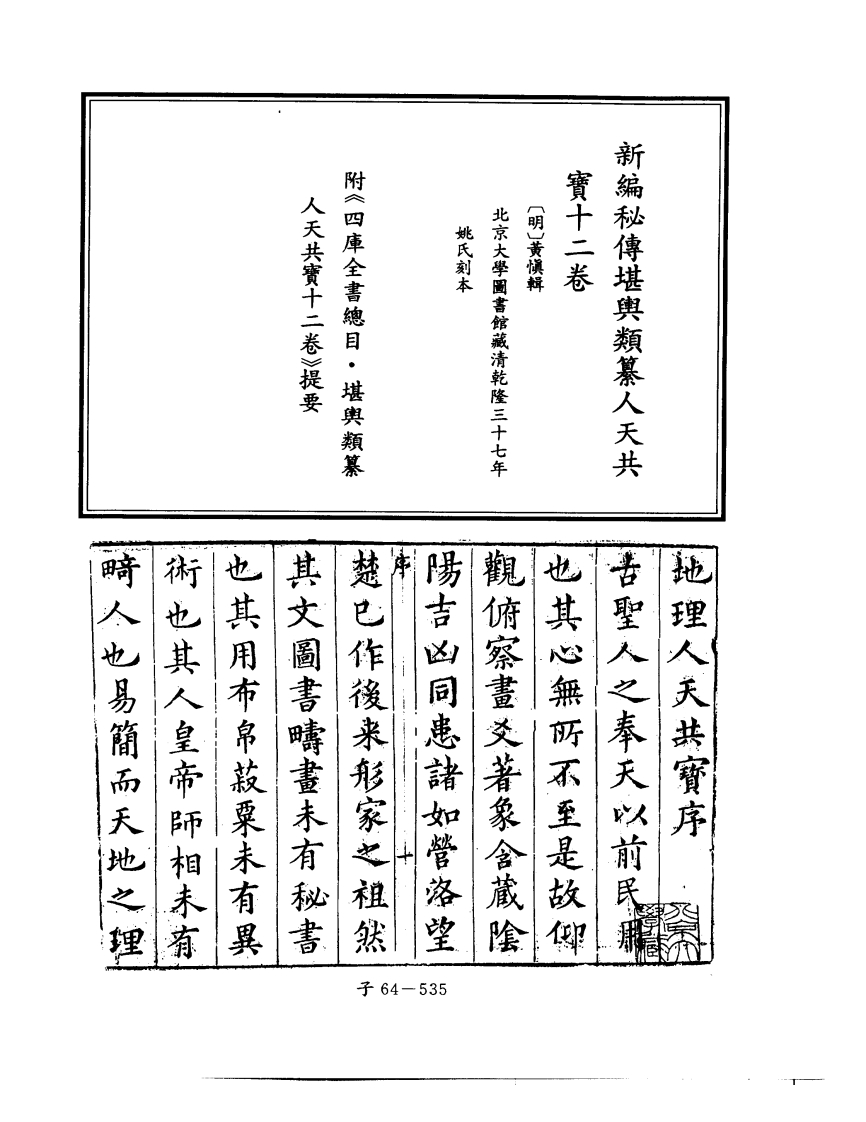 新編秘傳堪輿類纂人天共
寶十二卷
〔明〕黃慎輯
北京大學圖書館藏清乾隆三十七年
姚氏刻本
附《四庫全書總目·堪輿類纂
人天共寶十二卷》提要
地理人天共寶序
古聖人之奉天以前民用
也其心無所不至是故仰
觀俯察畫爻著象含蔵陰
陽吉凶同患諸如營洛望
序
十
楚已作後来形家之祖然
其文圖書疇畫未有秘書
也其用布帛菽粟未有異
術也其人皇帝師相未有
畸人也易簡而天地之理
子 64－535